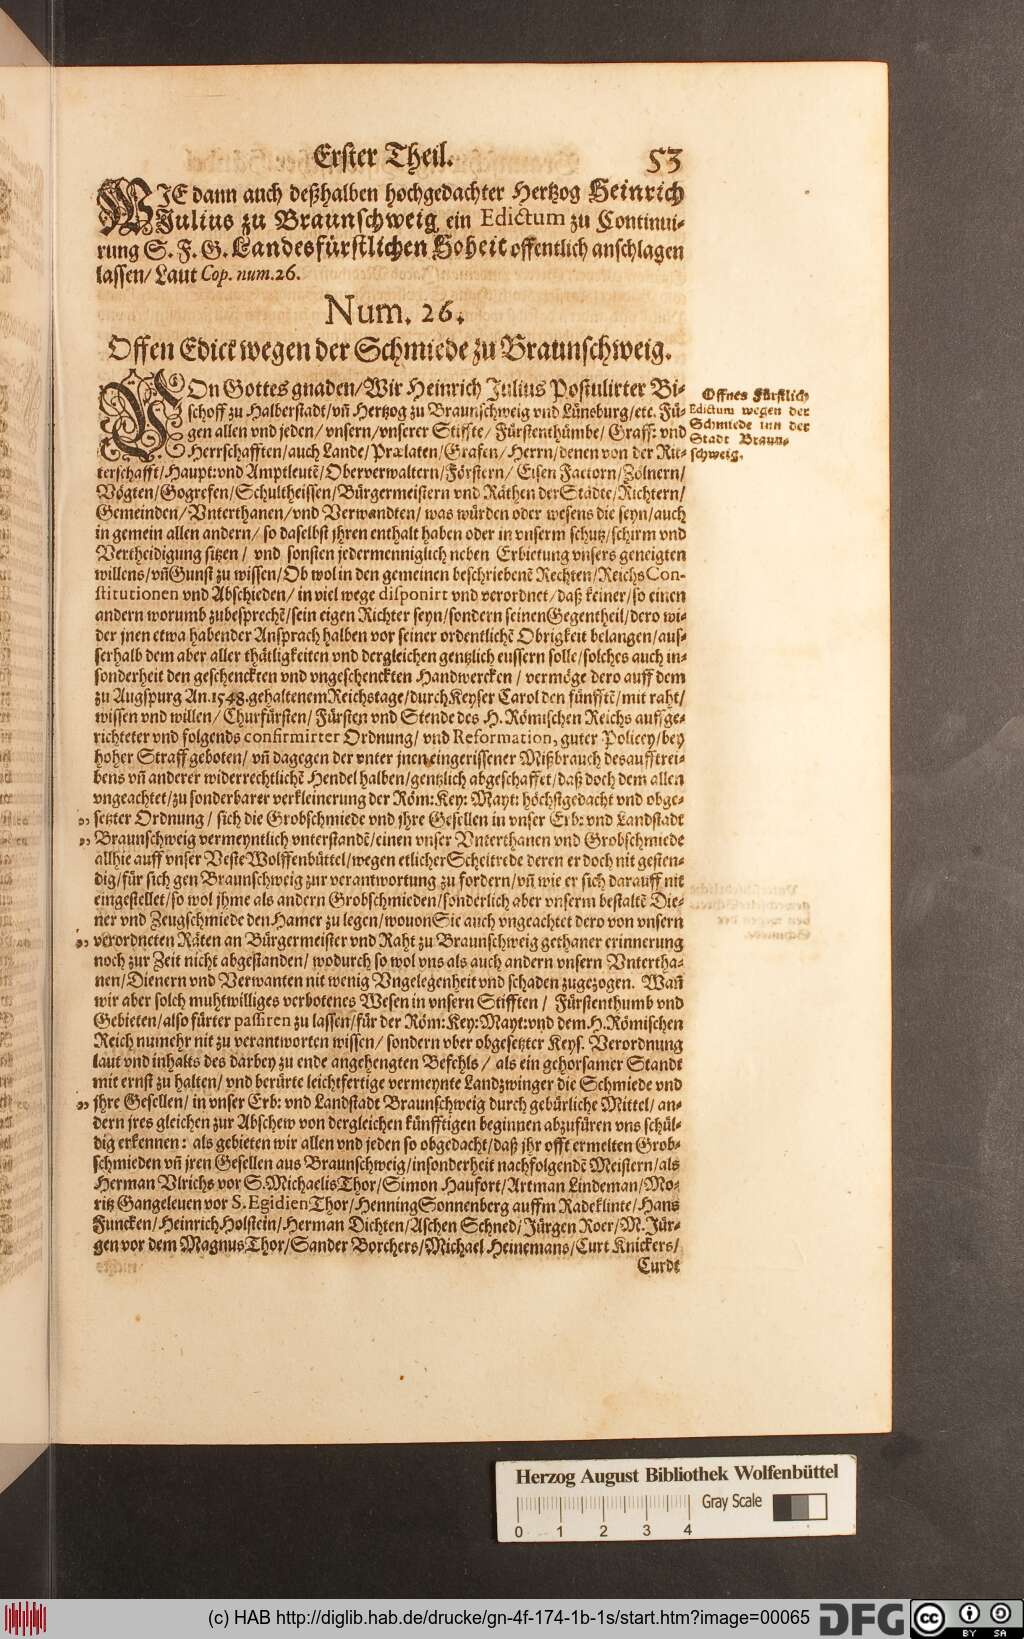 Erster Theil. 53
WIE dann auch deßhalben hochgedachter Hertzog Heinrich
Julius zu Braunschweig ein Edictum zu Continui-
rung S. F. G. Landesfürstlichen Hoheit offentlich anschlagen
lassen/ Laut Cop. num. 26.
Num. 26.
Offen Edict wegen der Schmiede zu Braunschweig.
VOn Gottes gnaden/ Wir Heinrich Julius Postulirter Bi-
schoff zu Halberstadt/ vñ Hertzog zu Braunschweig vnd Lüneburg/ etc. Fü-
gen allen vnd jeden/ vnsern/ vnserer Stiffte/ Fürstenthümbe/ Graff: vnd
Herrschafften/ auch Lande/ Prælaten/ Grafen/ Herrn/ denen von der Rit-
terschafft/ Haupt: vnd Amptleutẽ/ Oberverwaltern/ Förstern/ Eisen Factorn/ Zölnern/
Vögten/ Gogrefen/ Schultheissen/ Bürgermeistern vnd Räthen der Städte/ Richtern/
Gemeinden/ Vnterthanen/ vnd Verwandten/ was würden oder wesens die seyn/ auch
in gemein allen andern/ so daselbst jhren enthalt haben oder in vnserm schutz/ schirm vnd
Vertheidigung sitzen/ vnd sonsten jedermenniglich neben Erbietung vnsers geneigten
willens/ vñ Gunst zu wissen/ Ob wol in den gemeinen beschriebenẽ Rechten/ Reichs Con-
stitutionen vnd Abschieden/ in viel wege disponirt vnd verordnet/ daß keiner/ so einen
andern worumb zubesprechẽ/ sein eigen Richter seyn/ sondern seinen Gegentheil/ dero wi-
der jnen etwa habender Ansprach halben vor seiner ordentlichẽ Obrigkeit belangen/ aus-
serhalb dem aber aller thätligkeiten vnd dergleichen gentzlich eussern solle/ solches auch in-
sonderheit den geschenckten vnd vngeschenckten Handwercken/ vermöge dero auff dem
zu Augspurg An. 1548. gehaltenem Reichstage/ durch Keyser Carol den fünfftẽ/ mit raht/
wissen vnd willen/ Churfürsten/ Fürsten vnd Stende des H. Römischen Reichs auffge-
richteter vnd folgends confirmirter Ordnung/ vnd Reformation, guter Policey/ bey
hoher Straff geboten/ vñ dagegen der vnter jnen eingerissener Mißbrauch des aufftrei-
bens vñ anderer widerrechtlichẽ Hendel halben/ gentzlich abgeschaffet/ daß doch dem allen
vngeachtet/ zu sonderbarer verkleinerung der Röm: Key: Mayt: höchstgedacht vnd obge-
„ setzter Ordnung/ sich die Grobschmiede vnd jhre Gesellen in vnser Erb: vnd Landstadt
„ Braunschweig vermeyntlich vnterstandẽ/ einen vnser Vnterthanen vnd Grobschmiede
allhie auff vnser Veste Wolffenbüttel/ wegen etlicher Scheltrede deren er doch nit gesten-
dig/ für sich gen Braunschweig zur verantwortung zu fordern/ vñ wie er sich darauff nit
eingestellet/ so wol jhme als andern Grobschmieden/ sonderlich aber vnserm bestaltẽ Die-
ner vnd Zeugschmiede den Hamer zu legen/ wouon Sie auch vngeachtet dero von vnsern
„ verordneten Räten an Bürgermeister vnd Raht zu Braunschweig gethaner erinnerung
noch zur Zeit nicht abgestanden/ wodurch so wol vns als auch andern vnsern Vntertha-
nen/ Dienern vnd Verwanten nit wenig Vngelegenheit vnd schaden zugezogen. Wañ
wir aber solch muhtwilliges verbotenes Wesen in vnsern Stifften/ Fürstenthumb vnd
Gebieten/ also fürter passiren zu lassen/ für der Röm: Key: Mayt: vnd dem H. Römischen
Reich numehr nit zu verantworten wissen/ sondern vber obgesetzter Keys. Verordnung
laut vnd inhalts des darbey zu ende angehengten Befehls/ als ein gehorsamer Standt
mit ernst zu halten/ vnd berürte leichtfertige vermeynte Landzwinger die Schmiede vnd
„ jhre Gesellen/ in vnser Erb: vnd Landstadt Braunschweig durch gebürliche Mittel/ an-
dern jres gleichen zur Abschew von dergleichen künfftigen beginnen abzufüren vns schül-
dig erkennen: als gebieten wir allen vnd jeden so obgedacht/ daß jhr offt ermelten Grob-
schmieden vñ jren Gesellen aus Braunschweig/ insonderheit nachfolgendẽ Meistern/ als
Herman Vlrichs vor S. Michaelis Thor/ Simon Haufort/ Artman Lindeman/ Mo-
ritz Gangeleuen vor S. Egidien Thor/ Henning Sonnenberg auffm Radeklinte/ Hans
Funcken/ Heinrich Holstein/ Herman Dichten/ Aschen Schned/ Jürgen Roer/ M. Jür-
gen vor dem Magnus Thor/ Sander Borchers/ Michael Heinemans/ Curt Knickers/
Curdt
Offnes Fürstlich
Edictum wegen der
Schmiede inn der
Stadt Braun-
schweig.
Herzog August Bibliothek Wolfenbüttel
0 1 2 3 4 Gray Scale
(c) HAB http://diglib.hab.de/drucke/gn-4f-174-1b-1s/start.htm?image=00065 DFG cc BY SA